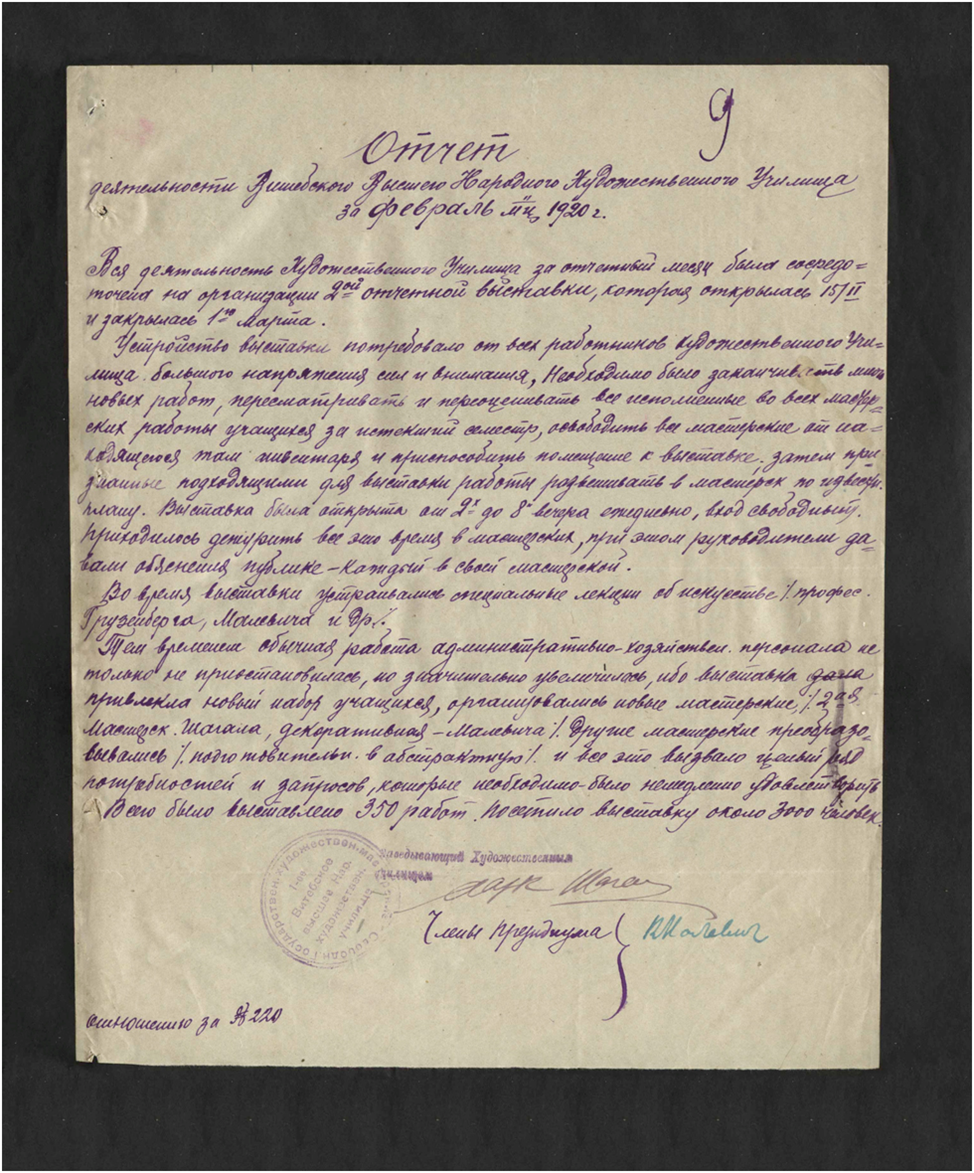 9
Отчет
деятельности Витебского Высшего Народного Художественного Училища
за февраль м-ц 1920 г.
Вся деятельность Художественного Училища за отчетный месяц была сосредо=
точена на организации 2ой отчетной выставки, которая открылась 15/II
и закрылась 1го Марта.
Устройство выставки потребовало от всех работников художественного Учи-
лища большого напряжения сил и внимания, Необходимо было заканчивать много
новых работ, пересматривать и переоценивать все исполненные во всех мастер-
ских работы учащихся за истекший семестр, освободить все мастерские от на=
ходящегося там инвентаря и приспособить помещение к выставке. Затем при
знанные подходящими для выставки работы развешивать в мастерск по известн.
плану. Выставка была открыта от 2х до 8 вечера ежедневно, вход свободный.
Приходилось дежурить все это время в мастерских, при этом руководители да=
вали объяснения публике – каждый в своей мастерской.
Во время выставки устраивались специальные лекции об искусстве /. профес.
Грузенберга, Малевича и Др./.
Тем временем обычная работа административно-хозяйствен. персонала не
только не приостановилась, но значительно увеличилась, ибо выставка дала
привлекла новый набор учащихся, организовались новые мастерские /. 2ая
Мастерск. Шагала, декоративная – Малевича ./. Другие мастерские преобразо-
вывались /. подготовительн. в абстрактную /. и все это вызвало целый ряд
потребностей и запросов, которые необходимо было немедленно удовлетворить
Всего было выставлено 350 работ. Посетило выставку около 3000 человек.
Заведывающий Художественным
Училищем
Марк Шагал
Члены Президиума
К Малевич
Государствен. художествен.
Свободн
1-ое
Витебское
высшее Нар.
художествен.
училище
отношению за № 220